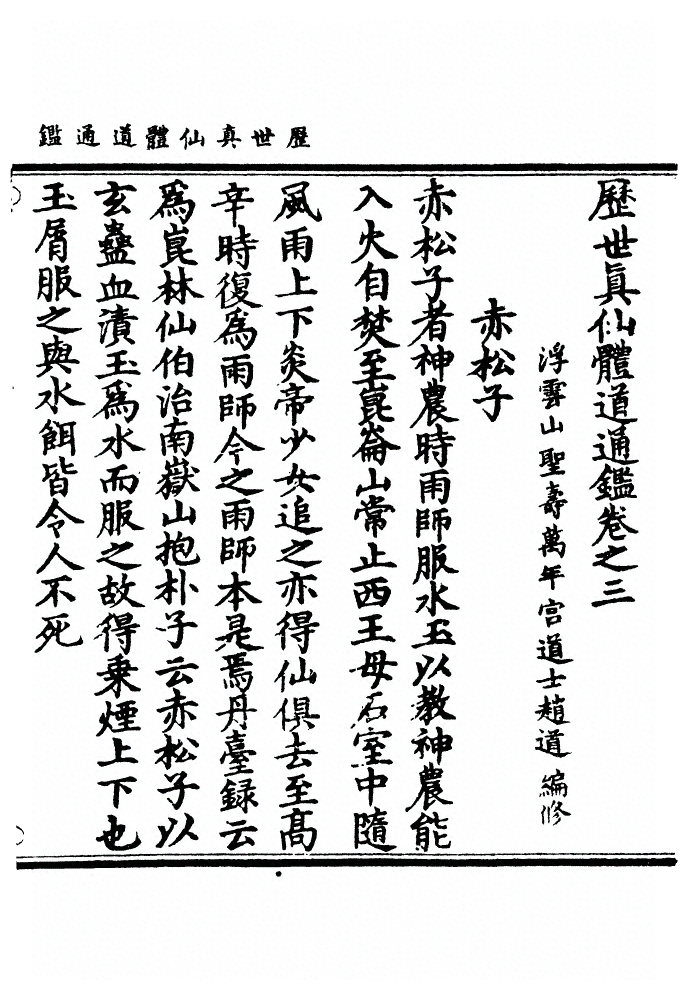 歷世真仙體道通鑑
歷世眞仙體道通鑑卷之三
浮雲山聖壽萬年宫道士趙道一編修
赤松子
赤松子者神農時雨師服水玉以教神農能
入火自焚至崑崙山常止西王母石室中隨
風雨上下炎帝少女追之亦得仙俱去至髙
辛時復爲雨師今之雨師本是焉丹臺録云
爲崑林仙伯治南嶽山抱朴子云赤松子以
玄蠱血漬玉爲水而服之故得乗煙上下也
玉屑服之與水餌皆令人不死